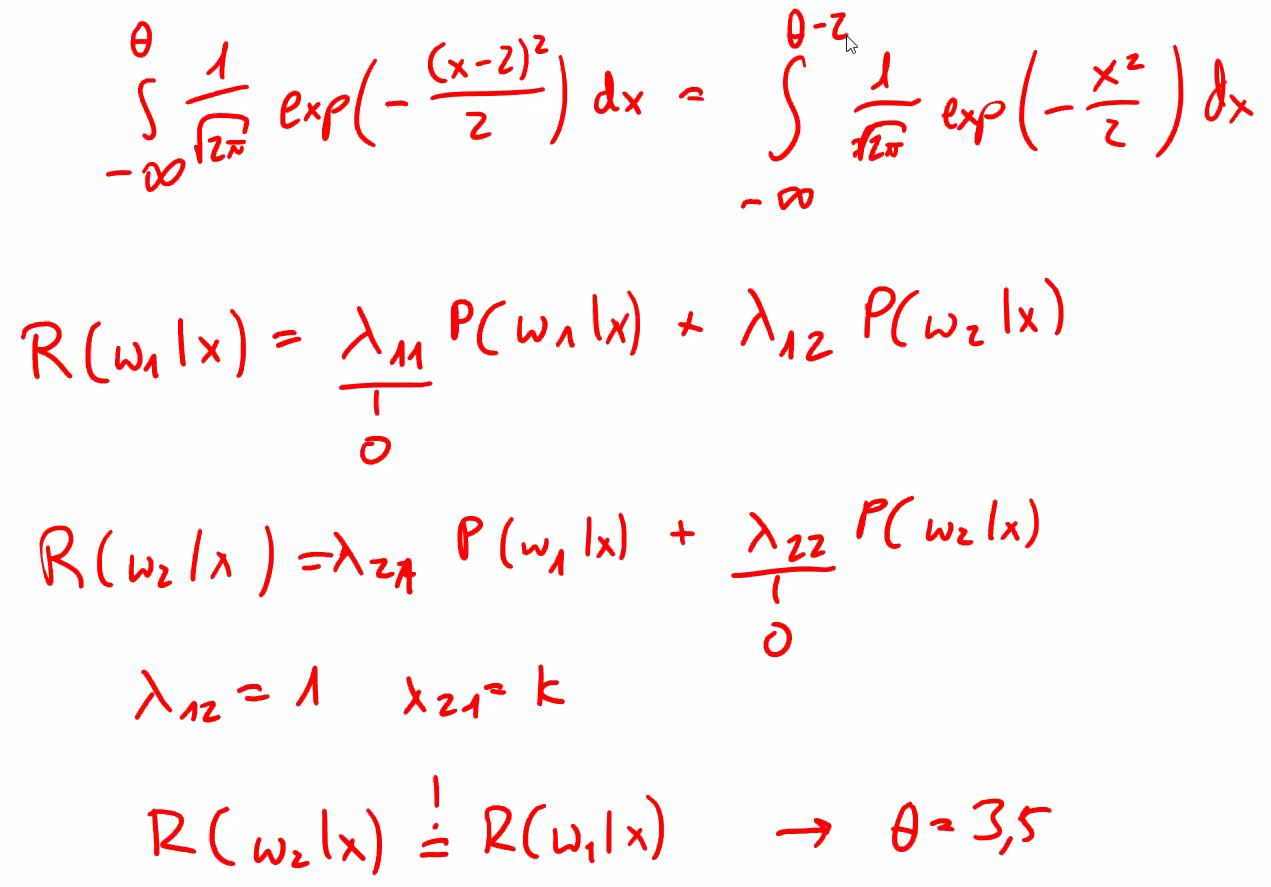 ∫_{-∞}^{θ} 1/√(2π) exp(-(x-2)²/2) dx = ∫_{-∞}^{θ-2} 1/√(2π) exp(-x²/2) dx
R(ω₁|x) = λ₁₁ P(ω₁|x) + λ₁₂ P(ω₂|x)
0
R(ω₂|x) = λ₂₁ P(ω₁|x) + λ₂₂ P(ω₂|x)
0
λ₁₂ = 1 x₂₁ = k
R(ω₂|x) =! R(ω₁|x) → θ = 3,5